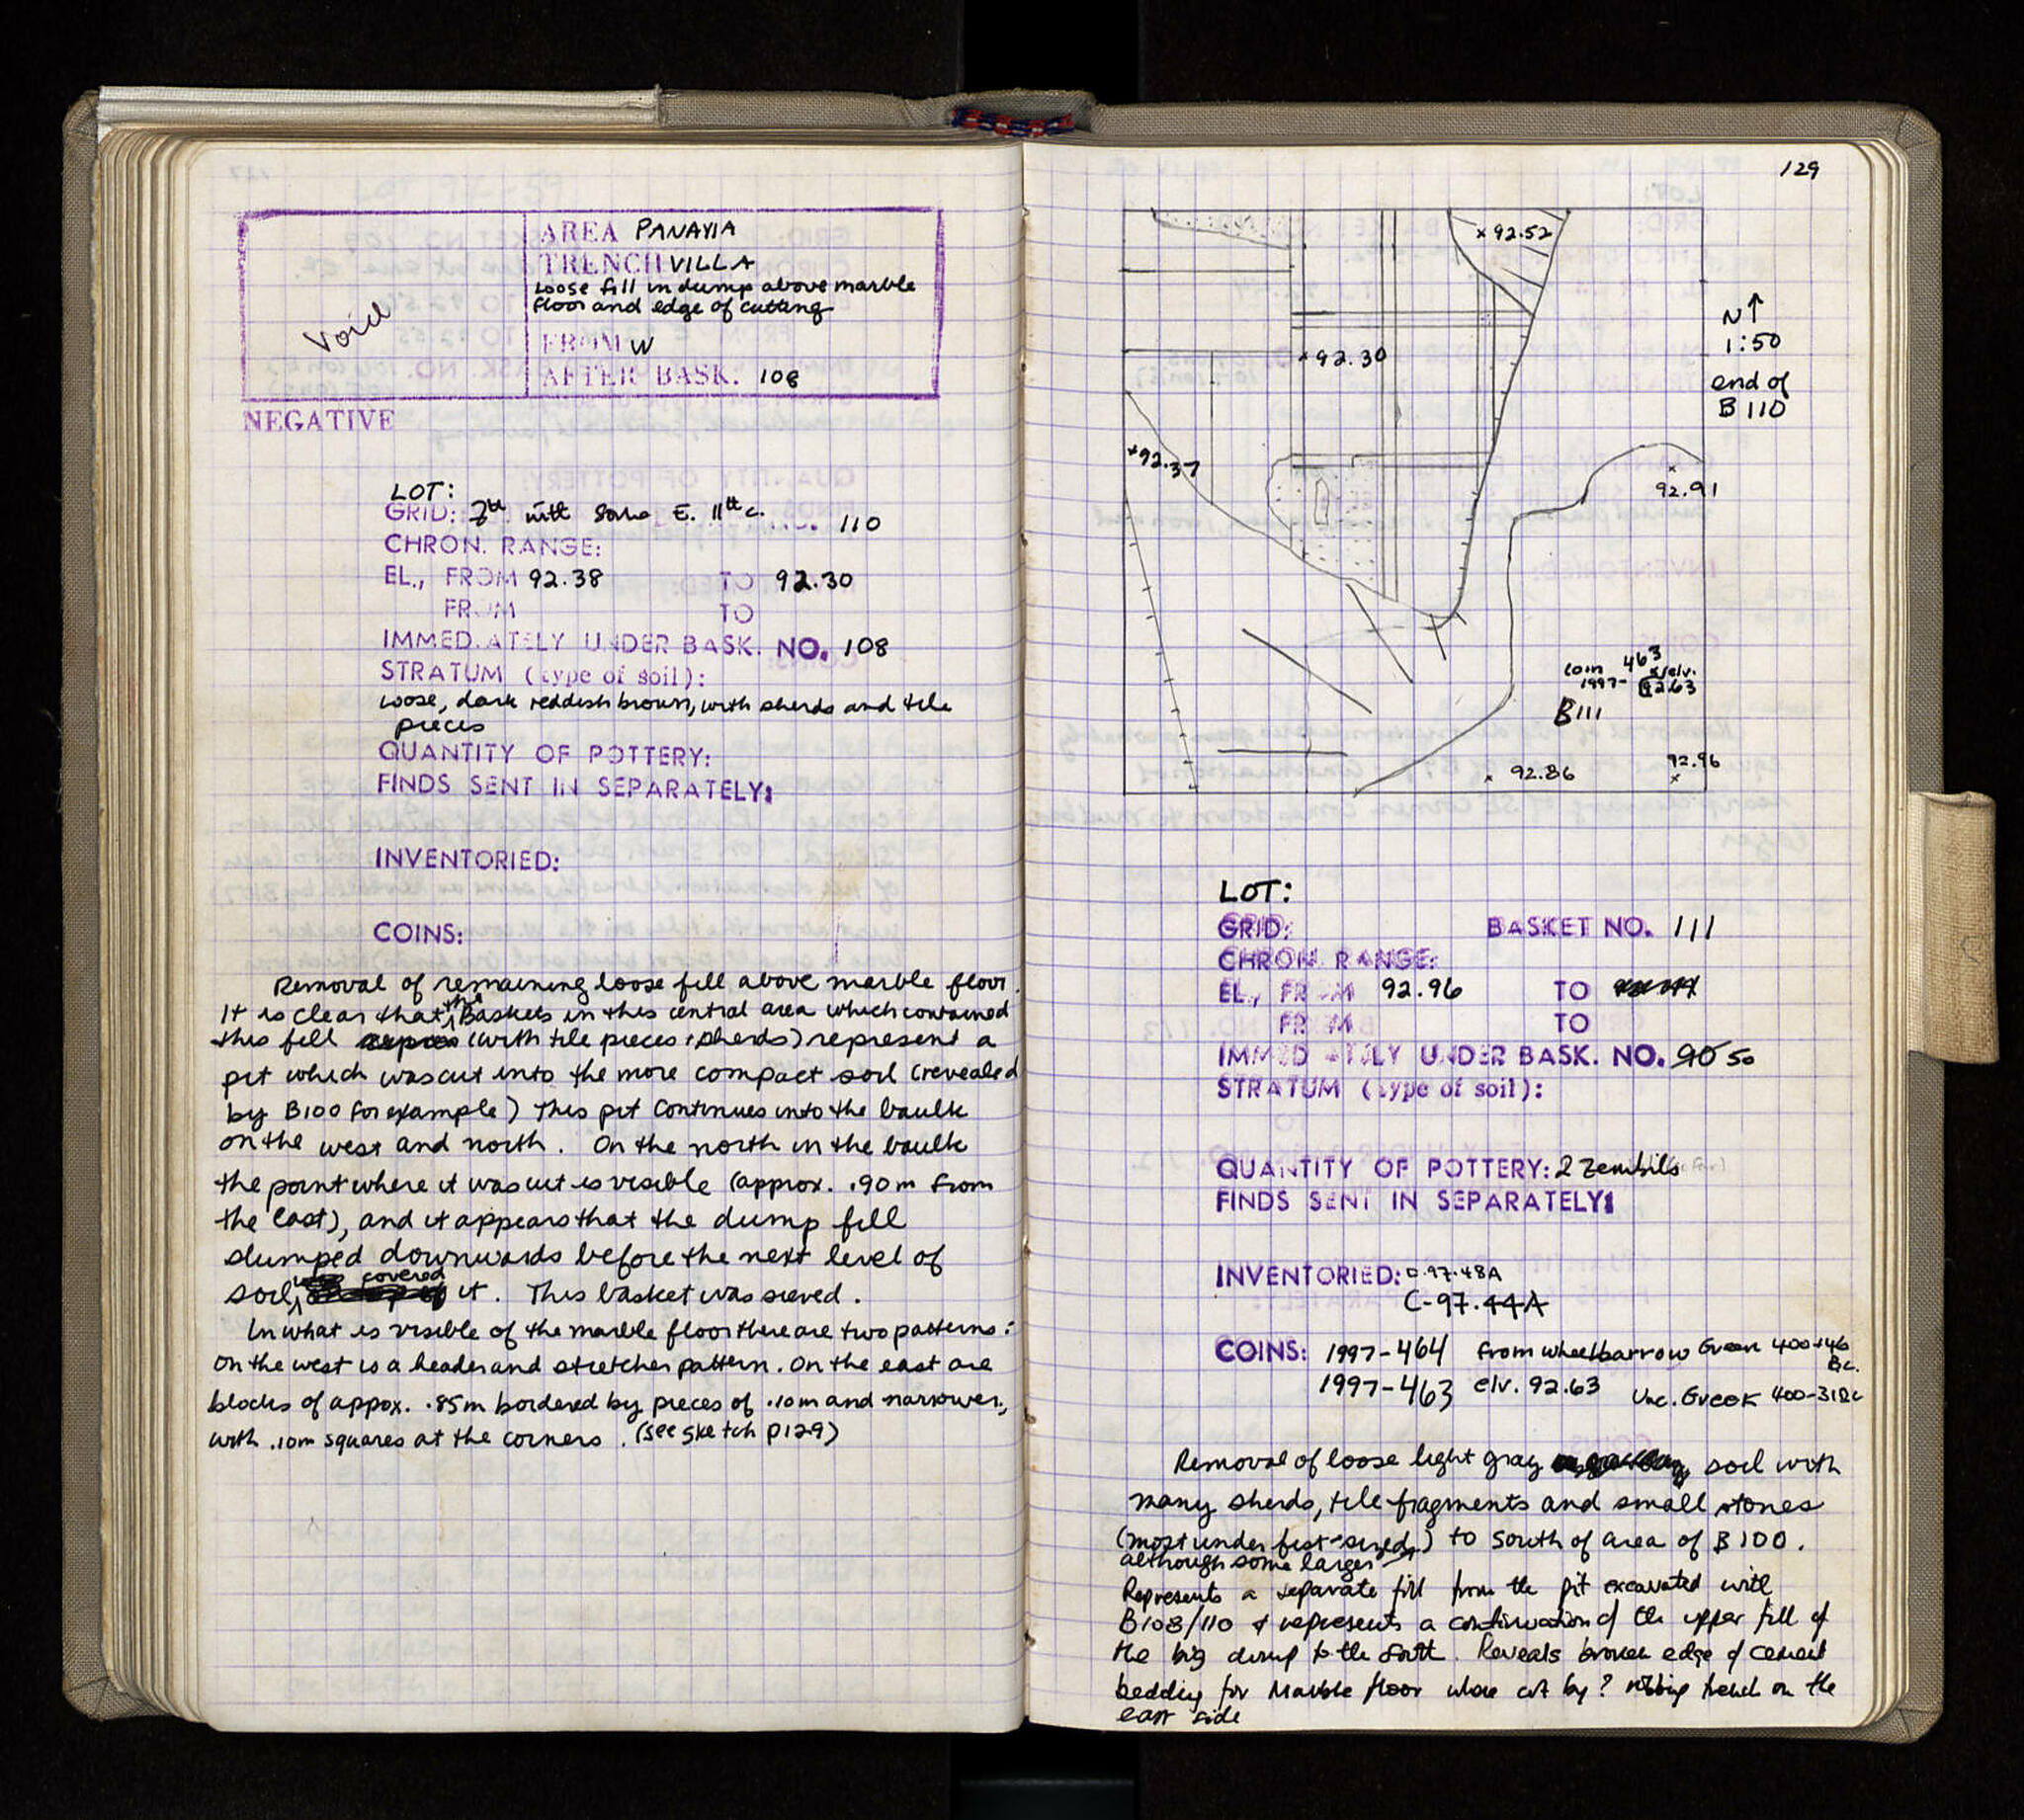 Void
AREA PANAYIA
TRENCH VILLA
Loose fill in dump above marble
floor and edge of cutting
FROM W
AFTER BASK. 108
NEGATIVE
LOT:
GRID: 7th with some E. 11th c. 110
CHRON. RANGE:
EL., FROM 92.38 TO 92.30
FROM TO
IMMEDIATELY UNDER BASK. NO. 108
STRATUM (type of soil):
Loose, dark reddish brown, with sherds and tile
pieces
QUANTITY OF POTTERY:
FINDS SENT IN SEPARATELY:
INVENTORIED:
COINS:
Removal of remaining loose fill above marble floor.
It is clear that the Baskets in this central area which contained
this fill (with tile pieces + sherds) represent a
pit which was cut into the more compact soil (revealed
by B100 for example) This pit continues into the baulk
on the west and north. On the north in the baulk
the point where it was cut is visible (approx. .90m from
the East), and it appears that the dump fill
slumped downwards before the next level of
soil covered it. This basket was sieved.
In what is visible of the marble floor there are two patterns:
On the west is a header and stretcher pattern. On the east are
blocks of appox. .85m bordered by pieces of .10m and narrower,
with .10m squares at the corners. (see sketch p129)
129
x 92.52
N↑
1:50
end of
B 110
x 92.30
x 92.37
x
92.91
coin 463
1997- x/elv.
92.63
B111
x 92.86
92.96
x
LOT:
GRID: BASKET NO. 111
CHRON. RANGE:
EL., FROM 92.96 TO
FROM TO
IMMEDIATELY UNDER BASK. NO. 90 50
STRATUM (type of soil):
QUANTITY OF POTTERY: 2 zembils
FINDS SENT IN SEPARATELY:
INVENTORIED: C-97-48A
C-97-44A
COINS: 1997-464 from wheelbarrow Greek 400-146
B.C.
1997-463 elv. 92.63 Unc. Greek 400-31BC
Removal of loose light gray soil with
many sherds, tile fragments and small stones
(most under fist-sized) to South of area of B 100.
although some larger
Represents a separate fill from the pit excavated with
B108/110 & represents a continuation of the upper fill of
the big dump to the South. Reveals broken edge of cement
bedding for Marble floor where cut by ? robbing trench on the
east side